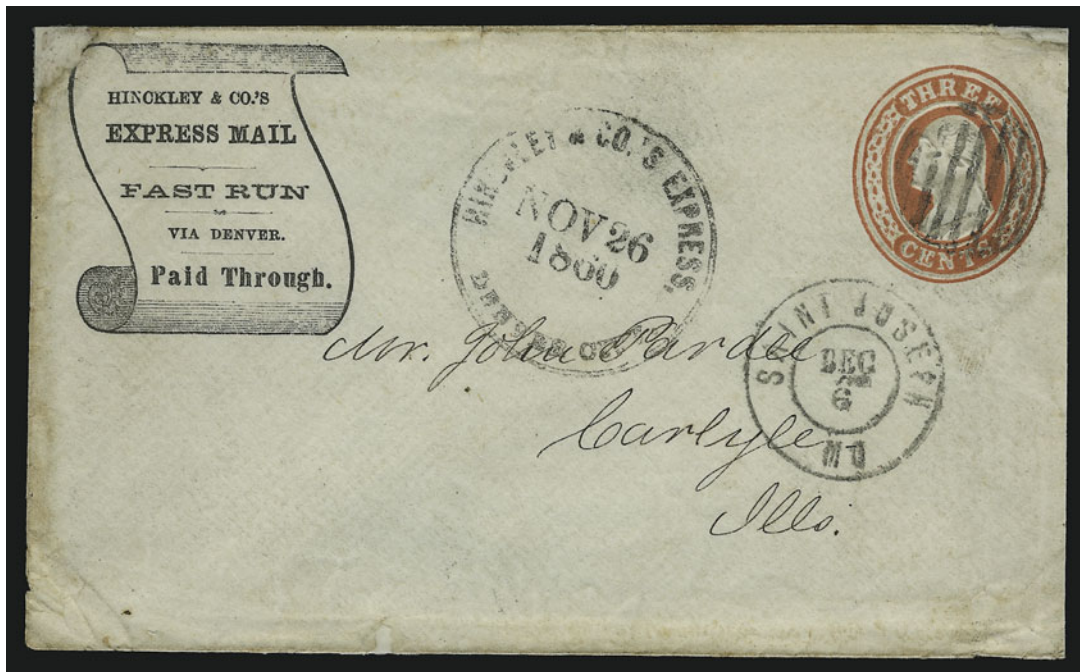 HINCKLEY & CO.'S
EXPRESS MAIL
FAST RUN
VIA DENVER.
Paid Through.
HINCKLEY & CO.'S EXPRESS,
NOV 26
1860
DENVER CITY
THREE
CENTS
SAINT JOSEPH
DEC
6
MO
Mr. John Pardee
Carlyle
Ills.